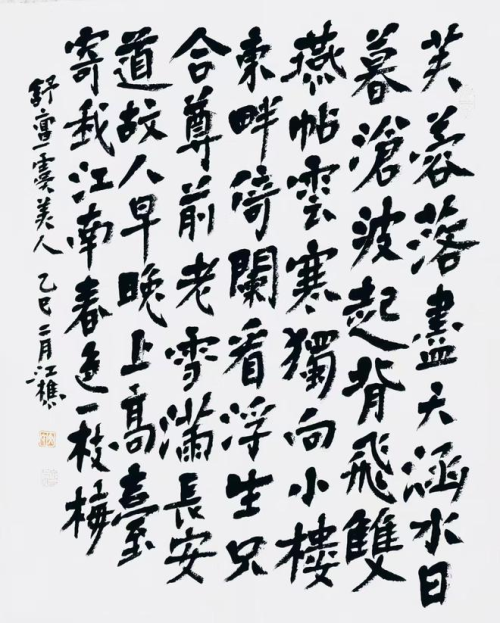 芙蓉落盡天涵水日
暮滄波起背飛雙
燕帖雲寒獨向小樓
東畔倚闌看浮生只
合尊前老雪滿長安
道故人早晚上高臺
寄我江南春色一枝梅
舒亶虞美人 乙巳二月江樵